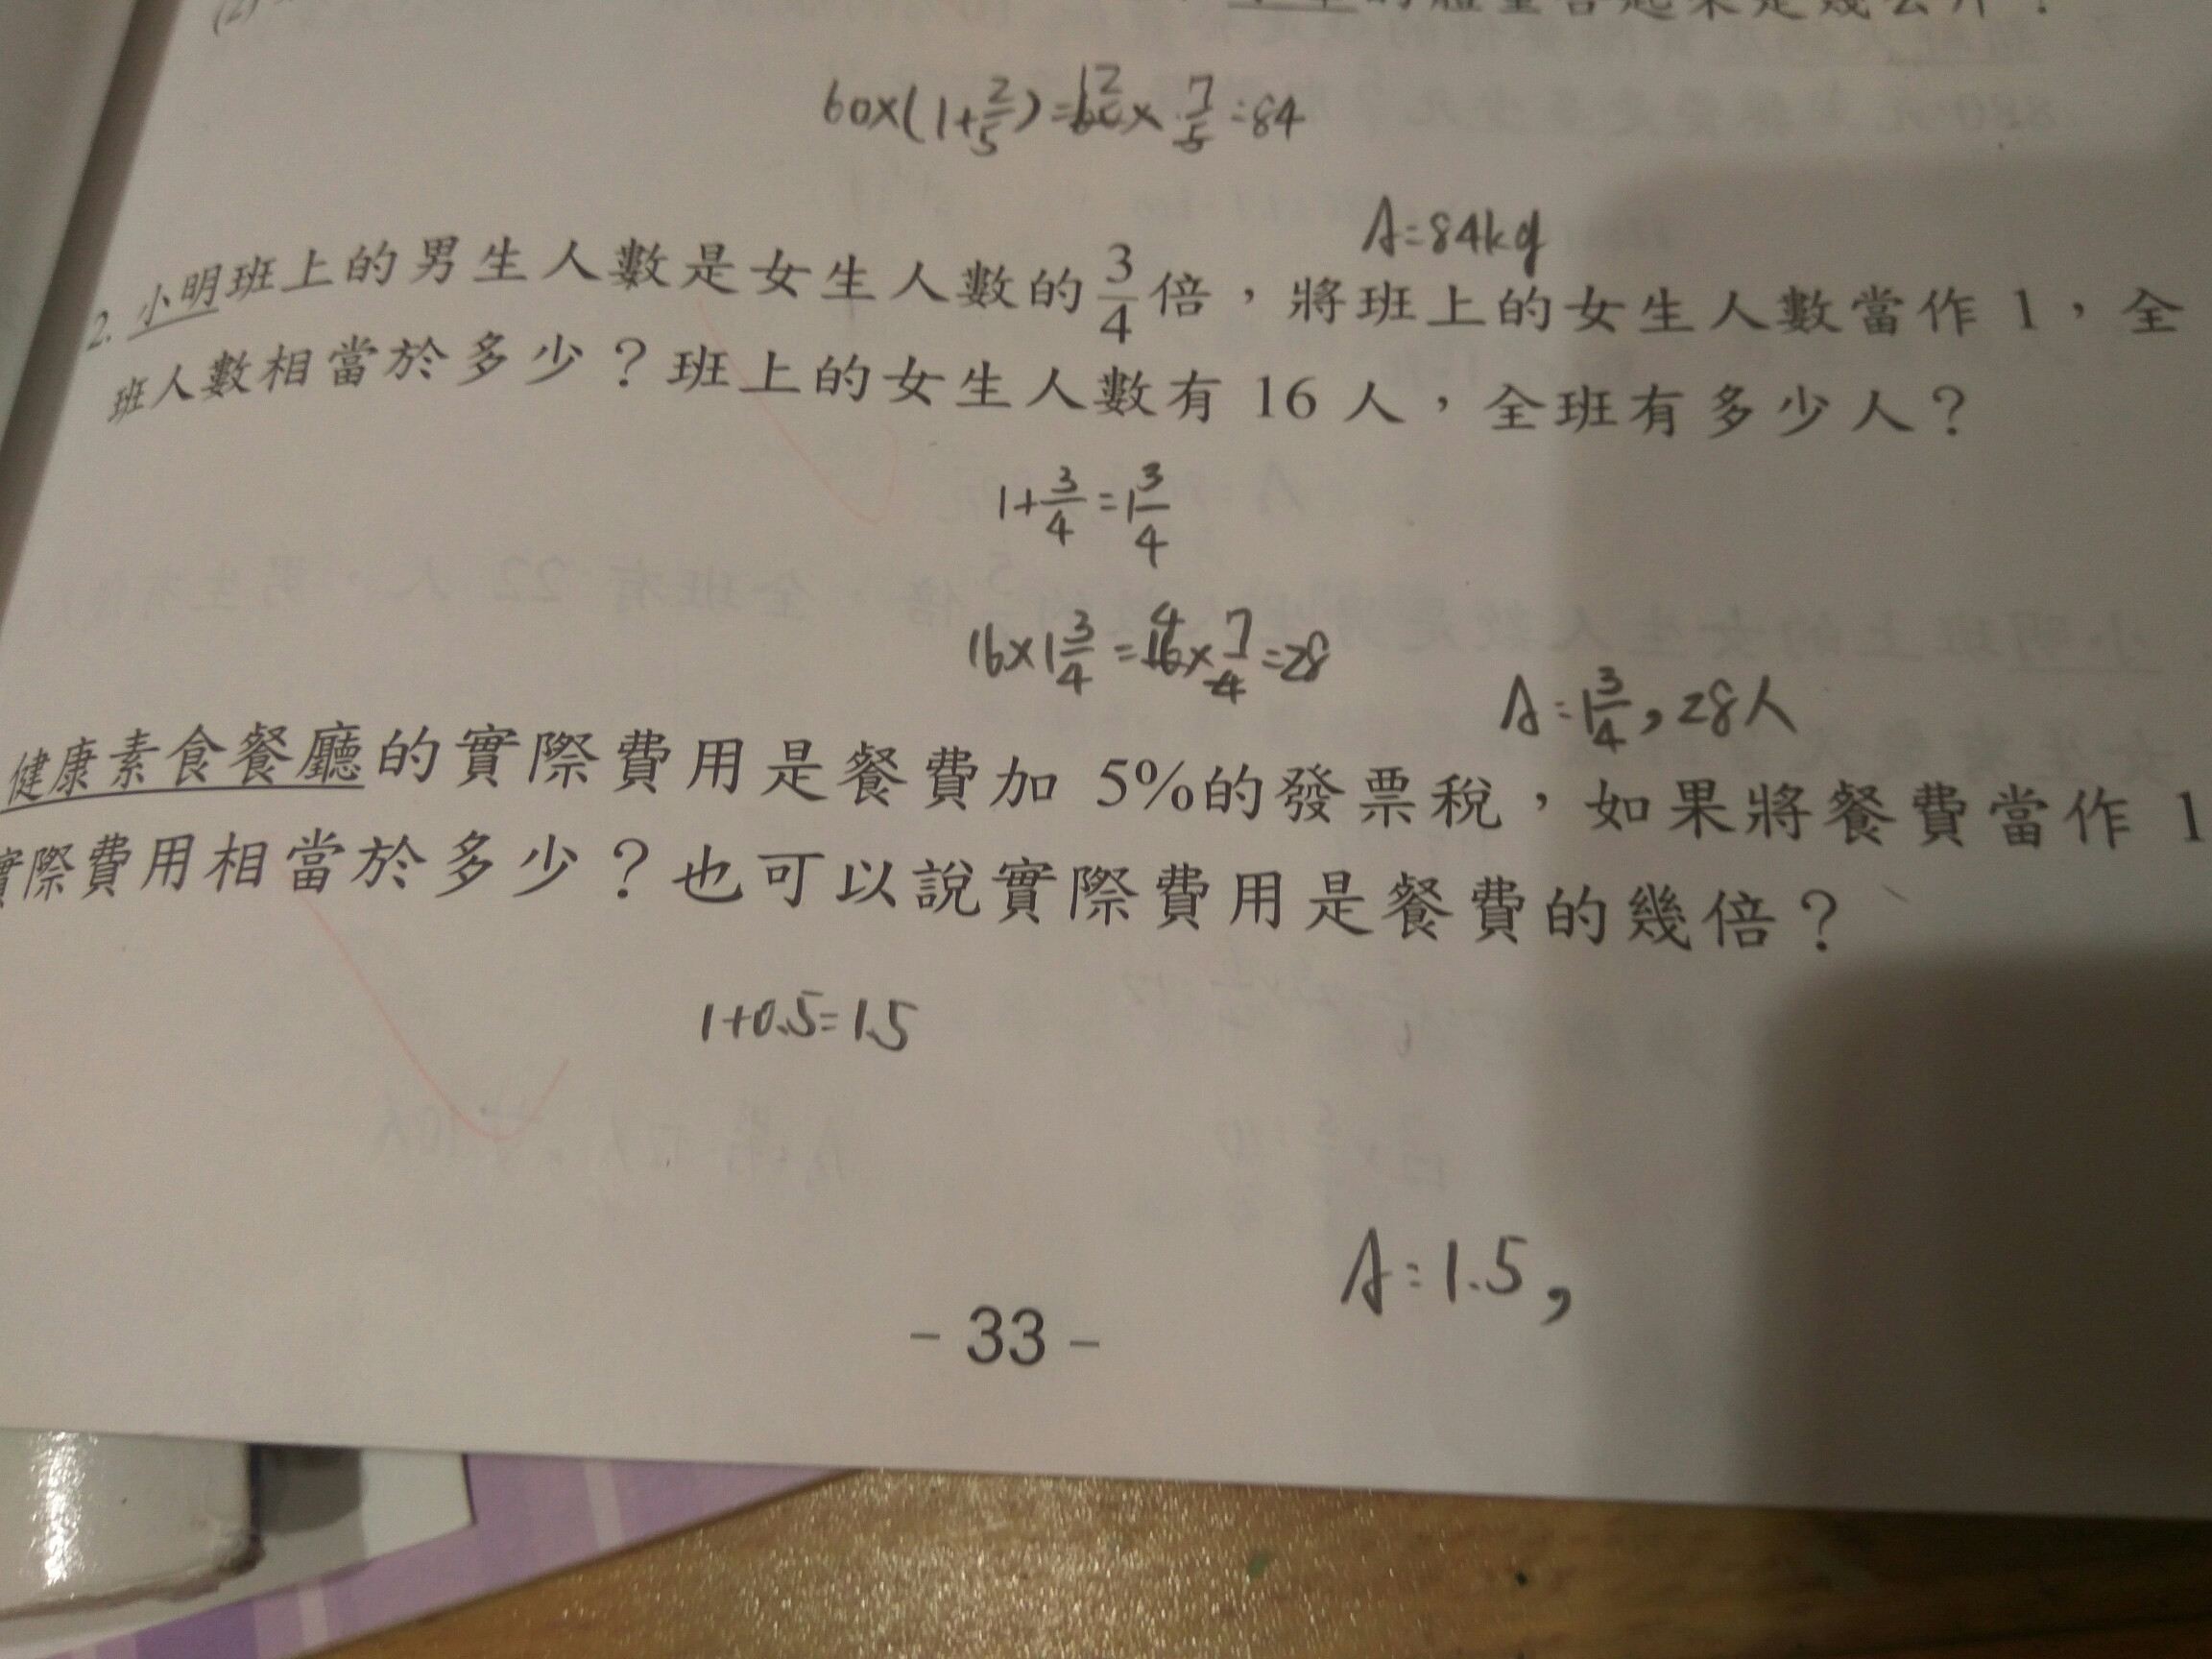 (2)
的體重合起來是幾公斤？
60×(1+2/5)=60 12×7/5=84
A=84kg
2. 小明班上的男生人數是女生人數的3/4倍，將班上的女生人數當作 1，全
班人數相當於多少？班上的女生人數有 16 人，全班有多少人？
1+3/4=1 3/4
16×1 3/4=16 4×7/4=28
A=1 3/4，28人
健康素食餐廳的實際費用是餐費加 5%的發票稅，如果將餐費當作 1
實際費用相當於多少？也可以說實際費用是餐費的幾倍？
1+0.5=1.5
A=1.5，
- 33 -